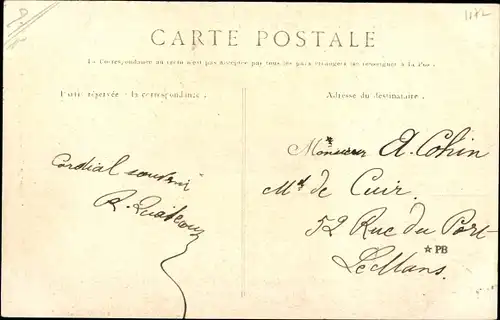 1172
CARTE POSTALE
La Correspondance au recto n'est pas acceptée par tous les pays étrangers (se renseigner à la Poste)
Partie réservée à la correspondance.
Adresse du destinataire.
Cordial souvenir
R.
Monsieur A. Cohin
Md de Cuir
52 Rue du Port
Le Mans.
PB